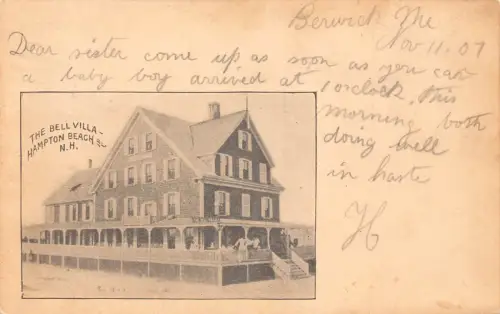 Berwick Me
Nov 11. 07
Dear sister come up as soon as you can
a baby boy arrived at 1 oclock. this
morning both
doing well
in haste
H
THE BELL VILLA -
HAMPTON BEACH,
N.H.